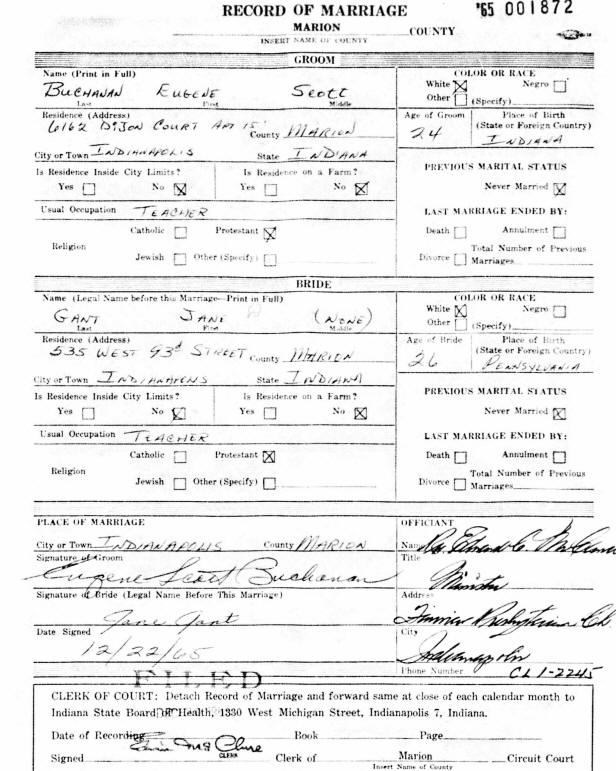 RECORD OF MARRIAGE '65 001872
MARION COUNTY
INSERT NAME OF COUNTY
GROOM
Name (Print in Full)
BUCHANAN EUGENE SCOTT
Last First Middle
COLOR OR RACE
White ☒ Negro ☐
Other ☐ (Specify)
Residence (Address)
6162 DIJON COURT APT 15 County MARION
City or Town INDIANAPOLIS State INDIANA
Age of Groom
24
Place of Birth
(State or Foreign Country)
INDIANA
Is Residence Inside City Limits?
Yes ☐ No ☒
Is Residence on a Farm?
Yes ☐ No ☒
PREVIOUS MARITAL STATUS
Never Married ☒
Usual Occupation TEACHER
Religion
Catholic ☐ Protestant ☒
Jewish ☐ Other (Specify) ☐
LAST MARRIAGE ENDED BY:
Death ☐ Annulment ☐
Divorce ☐ Total Number of Previous
Marriages
BRIDE
Name (Legal Name before this Marriage—Print in Full)
GANT JANE (NONE)
Last First Middle
COLOR OR RACE
White ☒ Negro ☐
Other ☐ (Specify)
Residence (Address)
535 WEST 93rd STREET County MARION
City or Town INDIANAPOLIS State INDIANA
Age of Bride
26
Place of Birth
(State or Foreign Country)
PENNSYLVANIA
Is Residence Inside City Limits?
Yes ☐ No ☒
Is Residence on a Farm?
Yes ☐ No ☒
PREVIOUS MARITAL STATUS
Never Married ☒
Usual Occupation TEACHER
Religion
Catholic ☐ Protestant ☒
Jewish ☐ Other (Specify) ☐
LAST MARRIAGE ENDED BY:
Death ☐ Annulment ☐
Divorce ☐ Total Number of Previous
Marriages
PLACE OF MARRIAGE
City or Town INDIANAPOLIS County MARION
Signature of Groom
Eugene Scott Buchanan
Signature of Bride (Legal Name Before This Marriage)
Jane Gant
Date Signed
12/22/65
OFFICIANT
Name
Title
Minister
Address
Presbyterian Ch
City
Indianapolis
Phone Number CL 1-2245
FILED
CLERK OF COURT: Detach Record of Marriage and forward same at close of each calendar month to
Indiana State Board of Health, 1330 West Michigan Street, Indianapolis 7, Indiana.
Date of Recording Book Page
Signed Clerk of Marion Circuit Court
CLERK
Insert Name of County